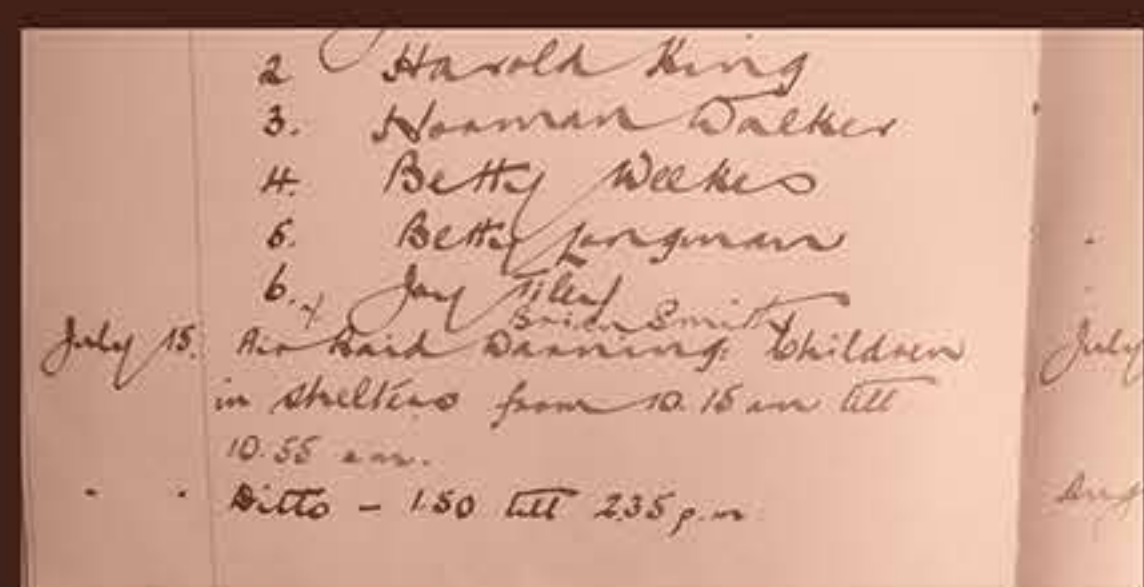 2 Harold King
3. Norman Walker
4. Betty Weekes
5. Betty Longman
6. Joy Tilley
Brian Smith
July 15. Air Raid Warning: Children
in shelters from 10.15 am till
10.55 a.m.
" " Ditto – 1.50 till 2.35 p.m
July
Aug